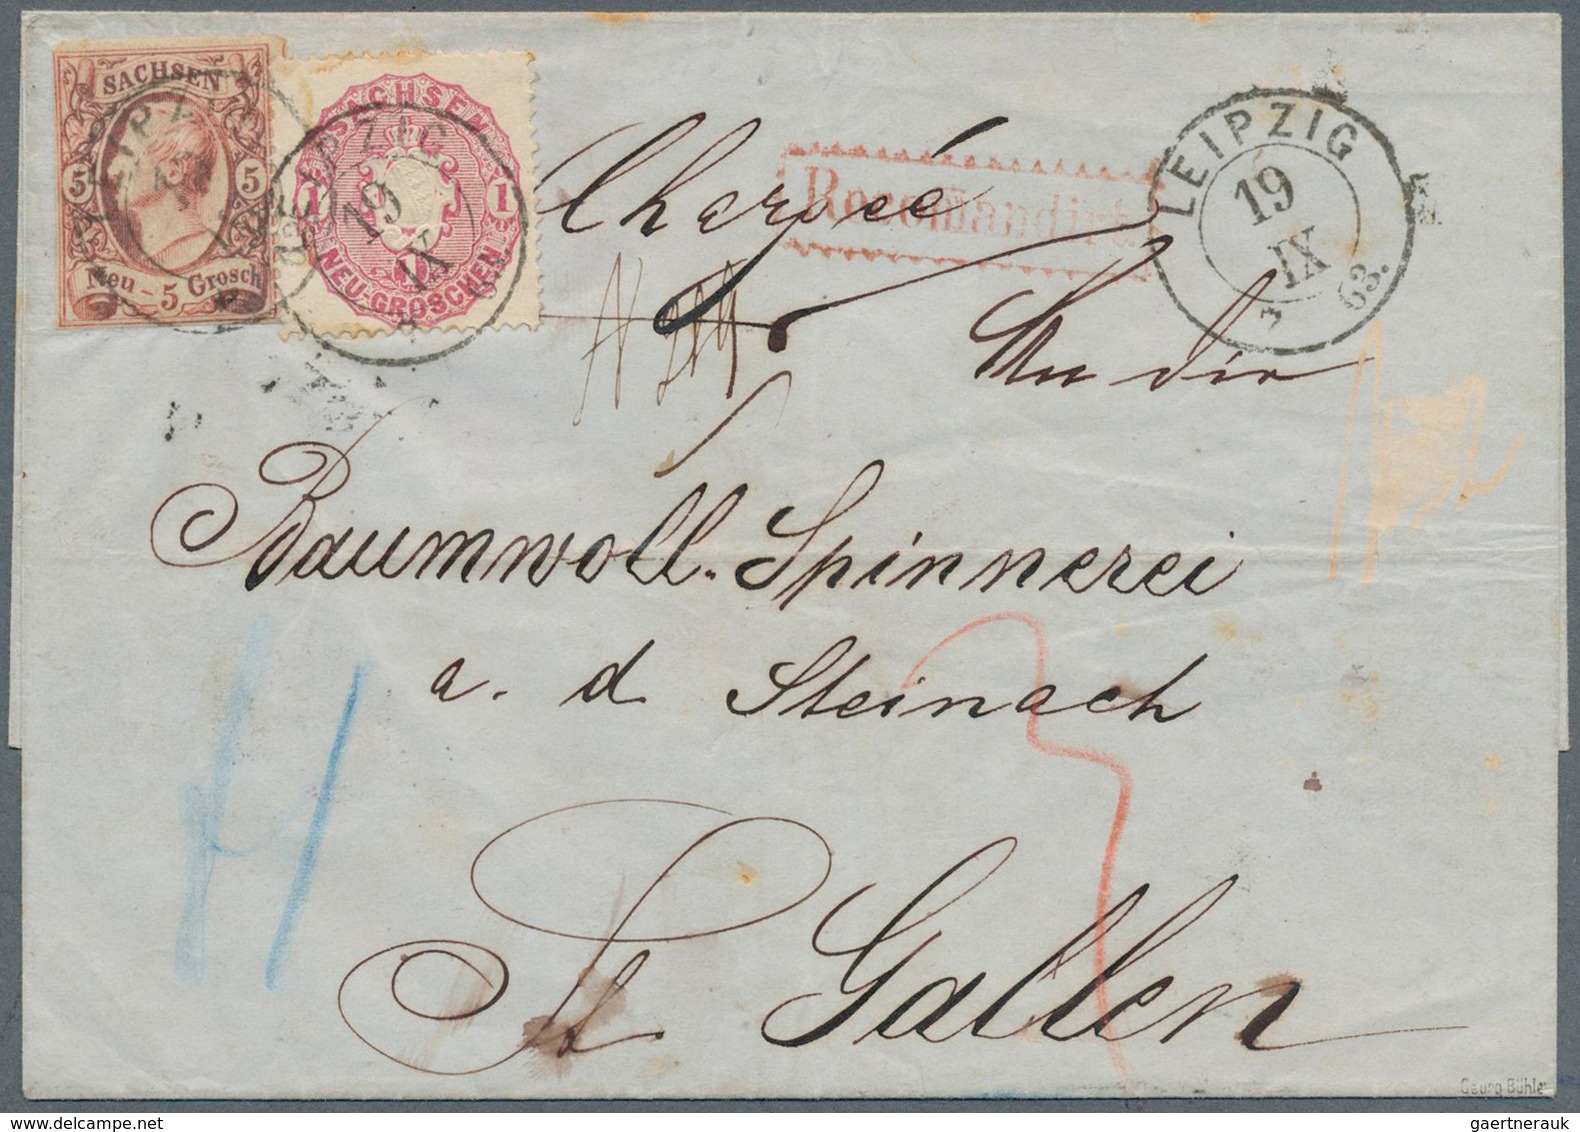 SACHSEN
5 5
Neu - 5 Grosch
SACHSEN
1 1
NEU-GROSCHEN.
LEIPZIG
19
IX
Chargée
Recomandirt.
LEIPZIG
19
IX
63.
An die
Baumwoll-Spinnerei
a. d Steinach
St Gallen
Georg Bühler
gaertnerauk